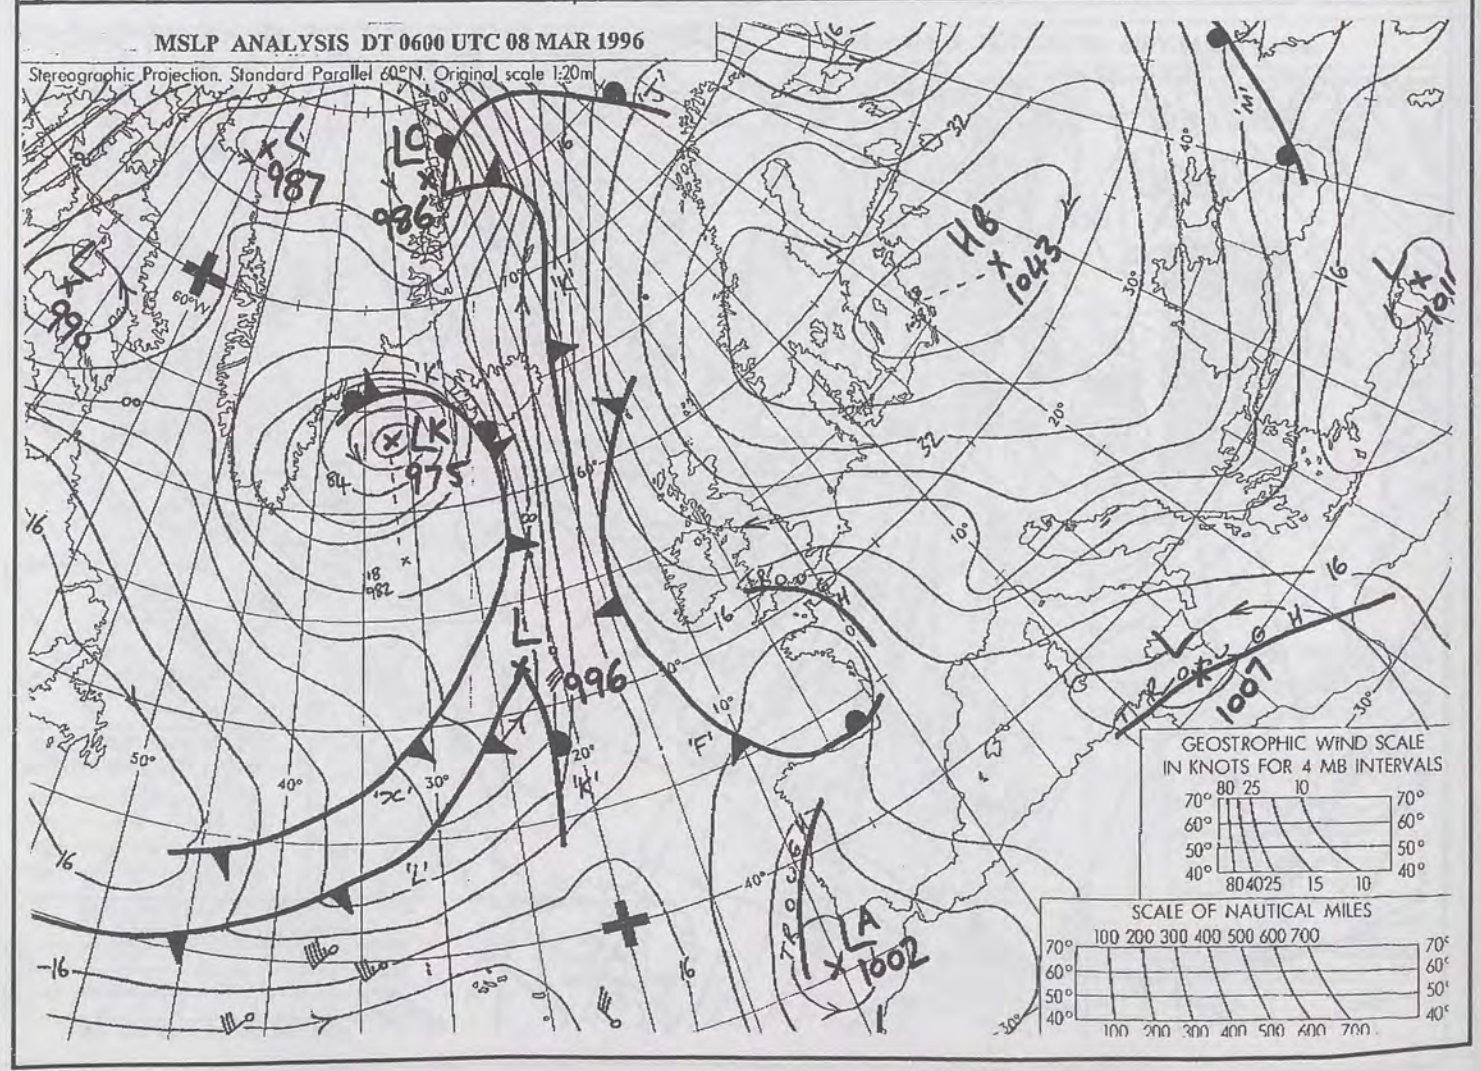 MSLP ANALYSIS DT 0600 UTC 08 MAR 1996
Stereographic Projection. Standard Parallel 60°N. Original scale 1:20m
'J'
'M'
16
32
L
987
LC
986
16
40°
HB
1043
30°
L
1011
16
L
990
60°W
70°
'K'
00
'K'
LK
975
84
60°
20°
32
16
8
10°
18
982
TROUGH
16
16
L
996
L
TROUGH
1007
10°
'F'
20°
'K'
30°
'X'
40°
50°
30°
16
'L'
40°
TROUGH
LA
1002
16
16
30°
GEOSTROPHIC WIND SCALE
IN KNOTS FOR 4 MB INTERVALS
80 25 10
70° 70°
60° 60°
50° 50°
40° 40°
80 40 25 15 10
SCALE OF NAUTICAL MILES
100 200 300 400 500 600 700
70° 70°
60° 60°
50° 50°
40° 40°
100 200 300 400 500 600 700